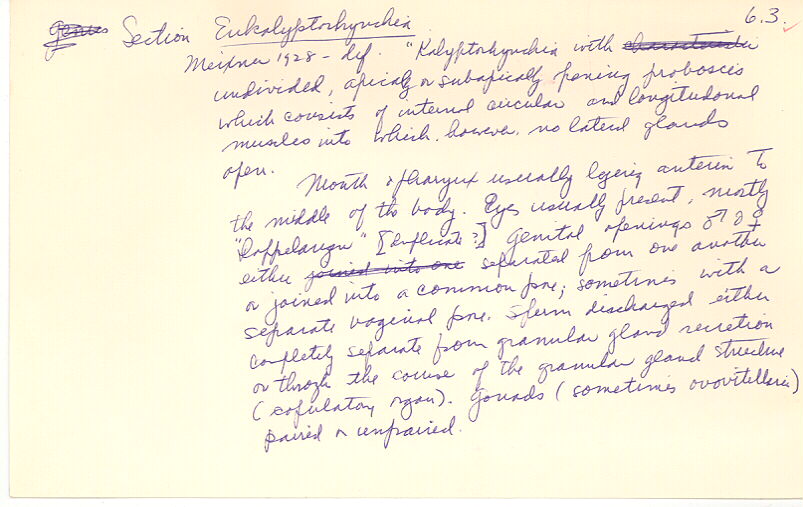 6.3.
genus Section Eukalyptorhynchia
Meixner 1928 - def. "Kalyptorhynchia with
undivided, apically or subapically opening proboscis
which consists of internal circular and longitudonal
muscles into which, however, no lateral glands
open.
Mouth & pharynx usually lying anterior to
the middle of the body. Eyes usually present, mostly
"Doppelaugen" [duplicate?] Genital openings ♂ & ♀
either joined into one separated from one another
or joined into a common pore; sometimes with a
separate vaginal pore. Sperm discharged either
completely separate from granular gland secretion
or through the course of the granular gland structure
(copulatory organ). Gonads (sometimes ovovitellaria)
paired or unpaired.